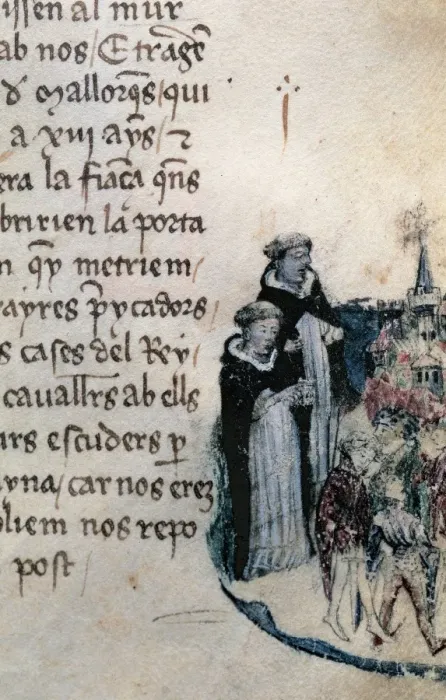 issen al mur
ab nos / E tragẽ
đ mallorq̃s / qui
a xiiij ays̃ / ⁊
era la fiãça q̃ns
bririen la porta
n q̃y metriem /
rayres p̃ycadors /
s cases del Rey /
cauallr̃s ab ells
urs escuders ꝑ
uyna / car nos erẽ
oliem nos repo
post /